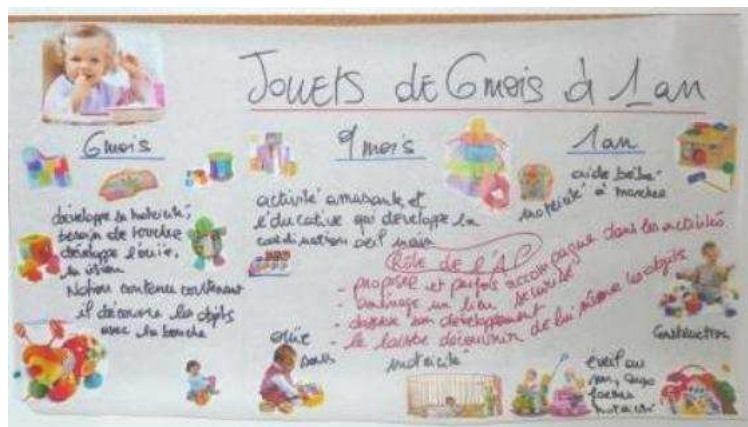 Jouets de 6 mois à 1 an
6 mois
développe la motricité,
besoin de toucher
développe l'ouïe,
la vision
Notion contenu contenant
il découvre les objets
avec la bouche
9 mois
activité amusante et
éducative qui développe la
coordination oeil main
1 an
aide bébé
à marcher
motricité
Rôle de l'AP
- propose et parfois accompagne dans les activités
- un lieu sécurisé
- son développement
- le laisse découvrir de lui même les objets
ouïe
motricité
Construction
éveil au
motricité